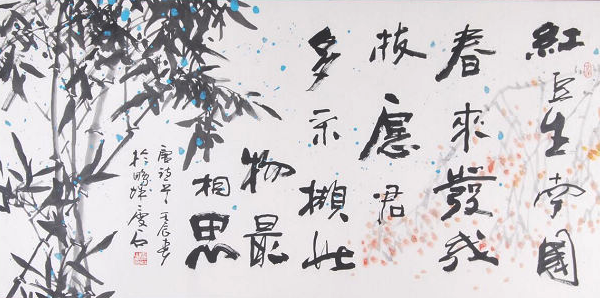 紅豆生南國
春來發幾
枝愿君
多采擷此
物最
相思
唐詩一首 壬辰春
於鵬城